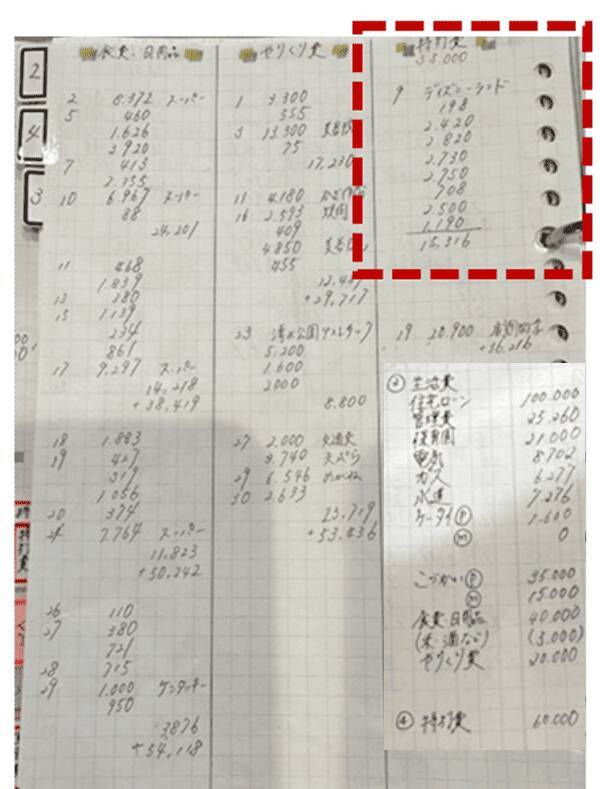 2
4
3
食費、日用品
2 8.372 スーパー
5 460
1.626
3.920
7 413
2.355
10 6.967 スーパー
88
24.201
11 468
1.839
13 380
15 1.139
234
861
17 9.297 スーパー
14.218
+38.419
18 1.883
19 427
319
1.056
20 374
24 7.764 スーパー
11.823
+50.242
26 110
27 380
721
28 715
29 1.000 ケンタッキー
950
3876
+54.118
やりくり費
1 3.300
555
3 13.300
75
17.230
11 4.180
16 2.593
409
4.850
455
12.487
+29.717
23 清水公園アスレチック
5.200
1.600
2000
8.800
27 2.000 交通費
3.740 天ぷら
29 6.546 めがね
30 2.633
23.719
+53.436
特別費
55.000
9 ディズニーランド
198
2.420
2.820
2.730
2.750
708
2.500
1.190
15.316
19 20.900
+36.216
③ 生活費
住宅ローン 100.000
管理費 25.260
保育園 21.000
電気 8.702
ガス 6.277
水道 7.276
ケータイ Ⓟ 1.600
Ⓜ 0
こづかい Ⓟ 35.000
Ⓜ 15.000
食費、日用品 40.000
(米・酒など) (5.000)
やりくり費 20.000
④ 特別費 60.000